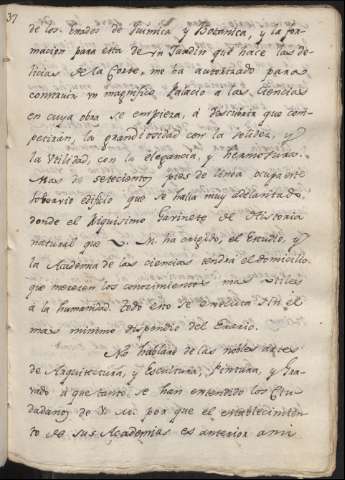 37
de los Grados de Quimica y Botanica, y la for-
macion para esta de un Jardin que hace las de-
licias de la Corte, me ha autorizado para
construir un magnifico Palacio a las Ciencias
en cuya obra se empieza, á descubrir que com-
petirán, la grandiosidad con la solidez, y
la Utilidad, con la elegancia, y hermosura.
Mas de setecientos pies de linea ocupa este
edificio que se halla muy adelantado,
donde el Riquisimo Gavinete de Historia
natural que V. M. ha erigido, el Estudio, y
la Academia de las ciencias tendrá el domicilio
que merecen los conocimientos mas utiles
á la humanidad. todo esto se executa sin el
mas minimo dispendio del Erario.
No hablaré de las nobles artes
de Arquitectura, y Escultura, Pintura, y Gra-
vado á que tanto se han extendido los Cui-
dados de V. M. por que el establecimien-
to de sus Academias es anterior a mi